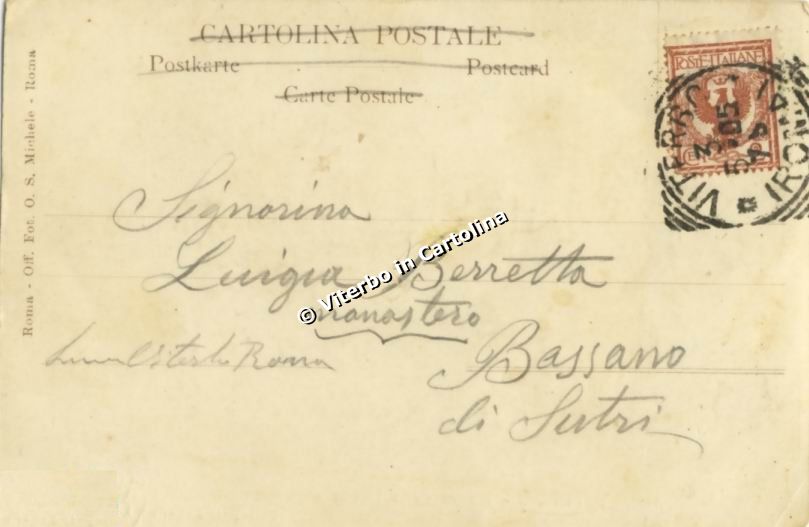 CARTOLINA POSTALE
Postkarte Postcard
Carte Postale
POSTE ITALIANE
VITERBO
3 05
Signorina
Luigia Berretta
monastero
Bassano
di Sutri
Roma
© Viterbo in Cartolina
Roma - Off. Fot. O. S. Michele - Roma